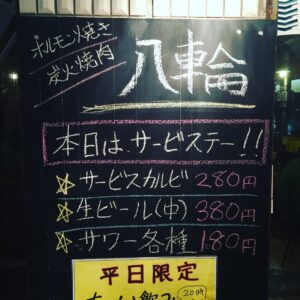 ホルモン焼き
炭火焼肉
八輪
本日はサービステー!!
☆サービスカルビ 280円
☆生ビール(中) 380円
☆サワー各種 180円
平日限定
20時